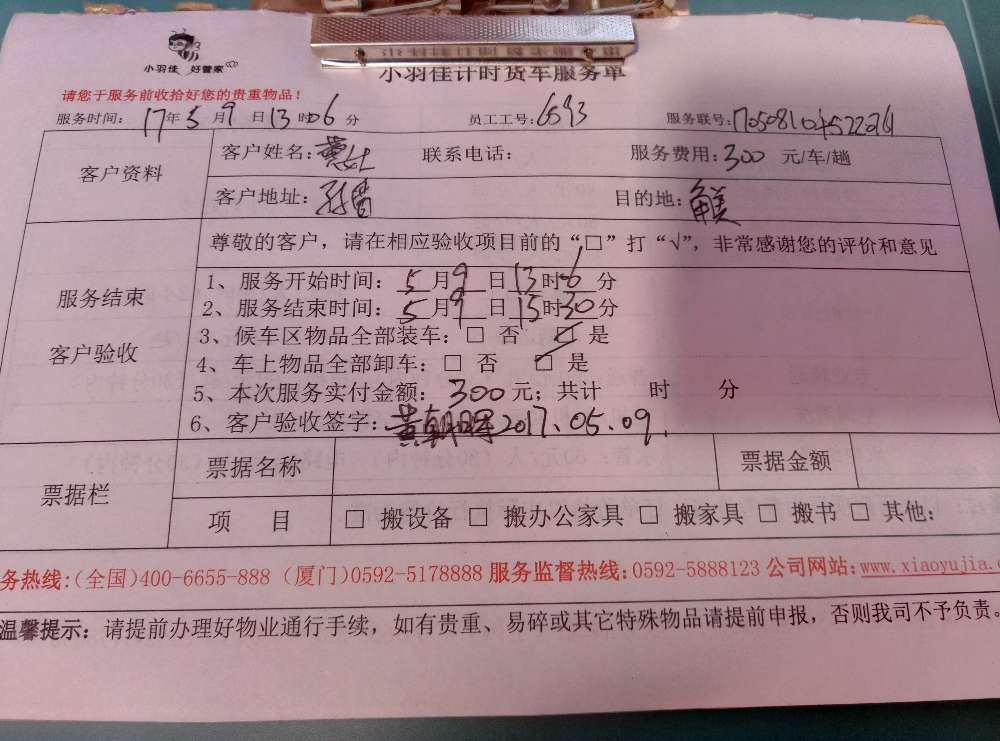 小羽佳 好管家
小羽佳计时货车服务单
请您于服务前收拾好您的贵重物品！
服务时间： 17年 5 月 9 日 13 时 06 分 员工工号：6593 服务联号：
客户资料
客户姓名： 联系电话： 服务费用：300 元/车/趟
客户地址： 目的地：
尊敬的客户，请在相应验收项目前的“□”打“√”，非常感谢您的评价和意见
服务结束
客户验收
1、服务开始时间： 5 月 9 日 13 时 6 分
2、服务结束时间： 5 月 9 日 15 时 30 分
3、候车区物品全部装车：□ 否 ☑ 是
4、车上物品全部卸车：□ 否 ☑ 是
5、本次服务实付金额： 300 元；共计 时 分
6、客户验收签字：黄朝晖2017.05.09.
票据栏
票据名称 票据金额
项 目 □ 搬设备 □ 搬办公家具 □ 搬家具 □ 搬书 □ 其他：
务热线:(全国)400-6655-888 (厦门)0592-5178888 服务监督热线:0592-5888123 公司网站:www.xiaoyujia.
温馨提示：请提前办理好物业通行手续，如有贵重、易碎或其它特殊物品请提前申报，否则我司不予负责。